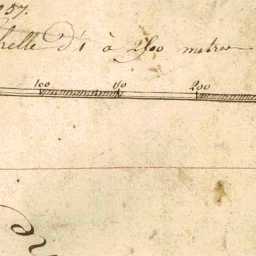 957.
helle d'1 à 2500 metres
100 150 200